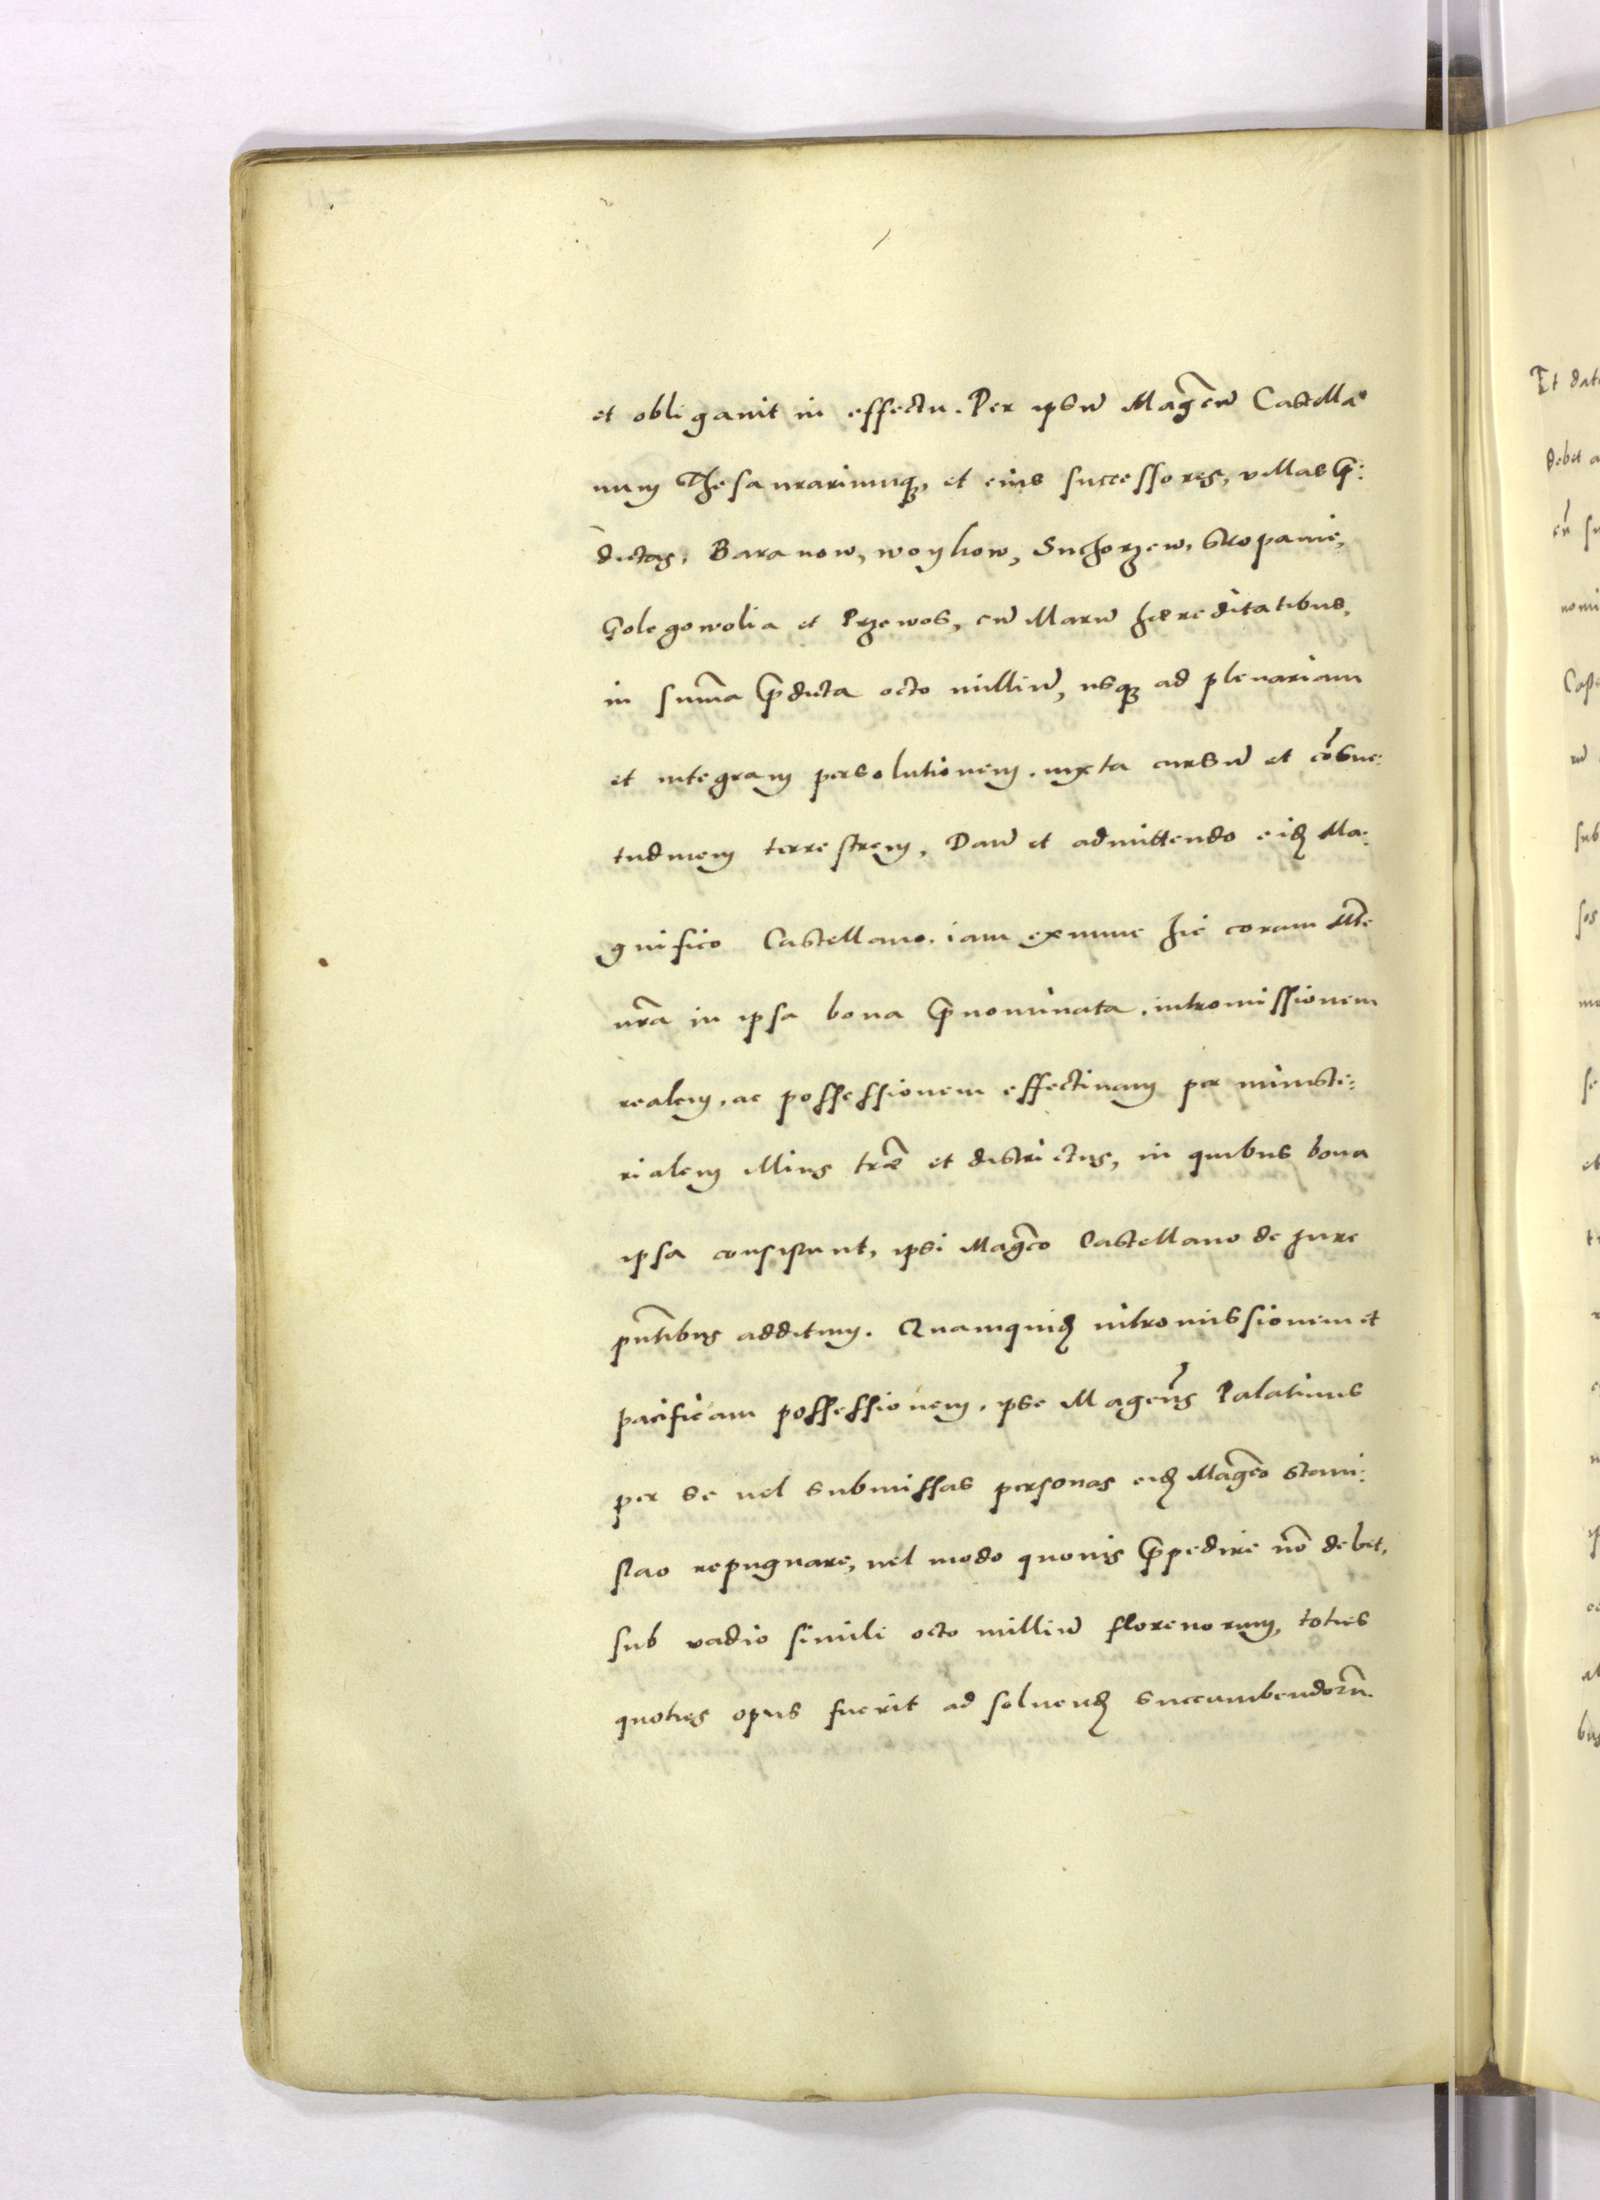 et obligauit in effectu. Per ipsū Magc̄ū Castella
num Thesaurariumq3, et eius successores, villas p̄:
dictas, Baranow, woykow, Suchorzew, Skopanie,
Golegowolia et Przewos, cū illarū hæreditatibus,
in sum̄a p̄dicta octo milliū, usq3 ad plenariam
et integram persolutionem. iuxta cursū et cōsue:
tudinem terrestrem, Dan̄ et admittendo eid Ma:
gnifico Castellano. iam exnunc hic coram Mte
nr̄a in ipsa bona p̄nominata, intromissionem
realem, ac possessionem effectiuam per ministe:
rialem illius tr̄æ et districtus, in quibus bona
ipsa consistunt, ipsi Magc̄o Castellano de Jure
pn̄tibus additum. Quamquid intromissionem et
pacificam possessionem, ipse Magcūs Palatinus
per se uel submissas personas eid Magc̄o Stani:
slao repugnare, uel modo quouis p̄pedire nō debet,
sub vadio simili octo milliū florenorum, toties
quoties opus fuerit ad soluend succumbendorū.
Et dat
debet a
nomi
sub
bus